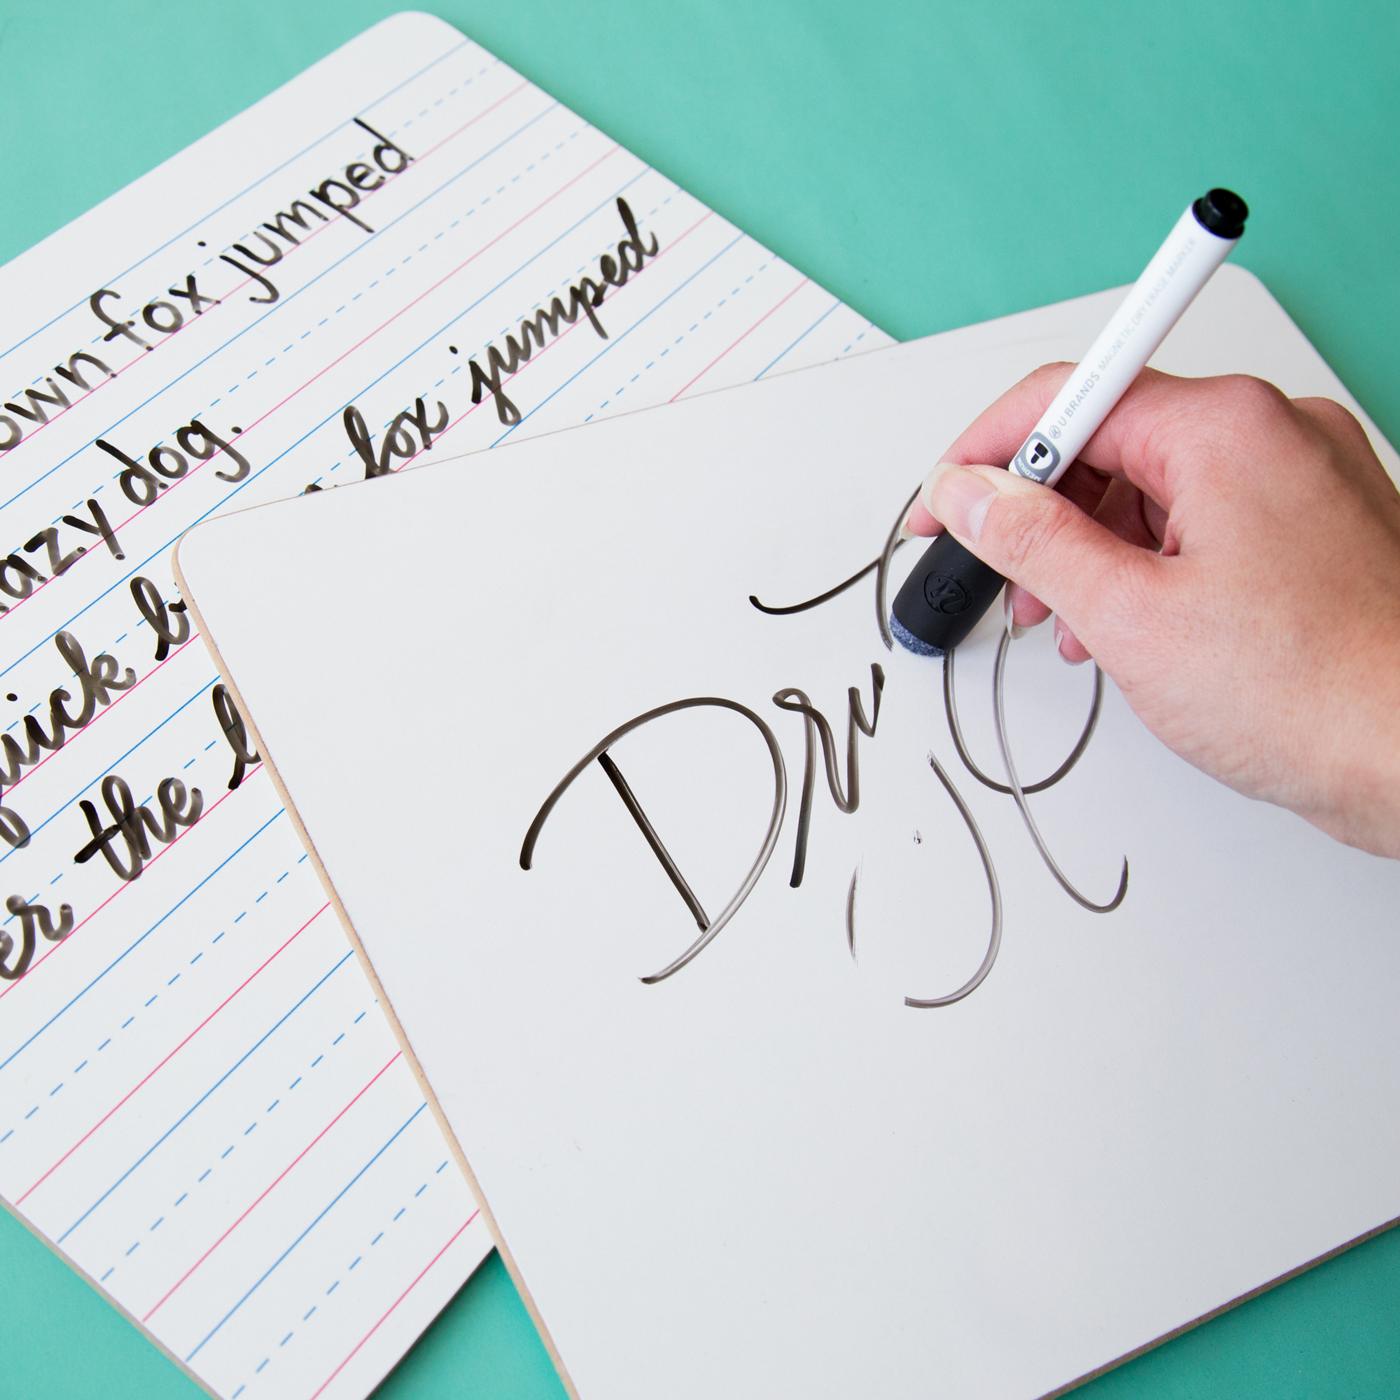 own fox jumped
azy dog.
uick b
fox jumped
er the l
Dry
U BRANDS MAGNETIC DRY ERASE MARKER
MEDIUM